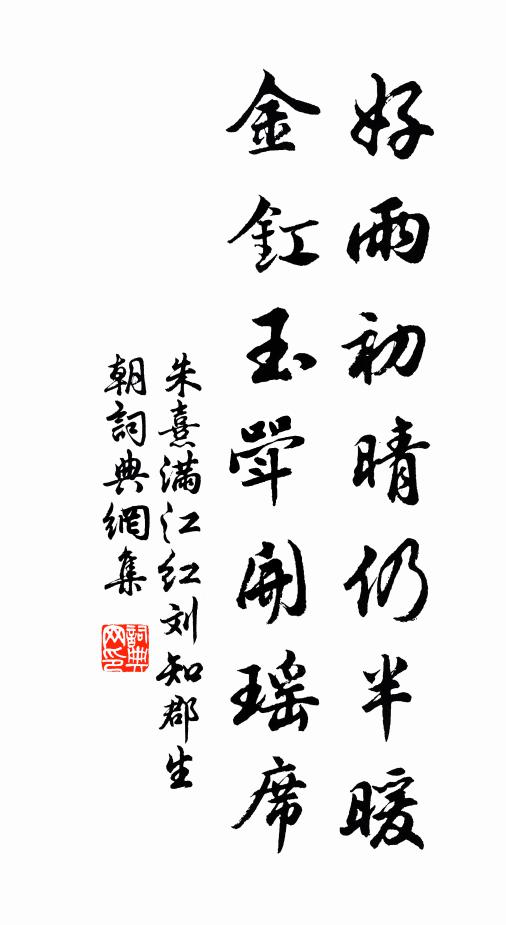 好雨初晴仍半暖
金釭玉斝開瑤席
朱熹滿江红刘知郡生
朝詞典網集
詞典網印